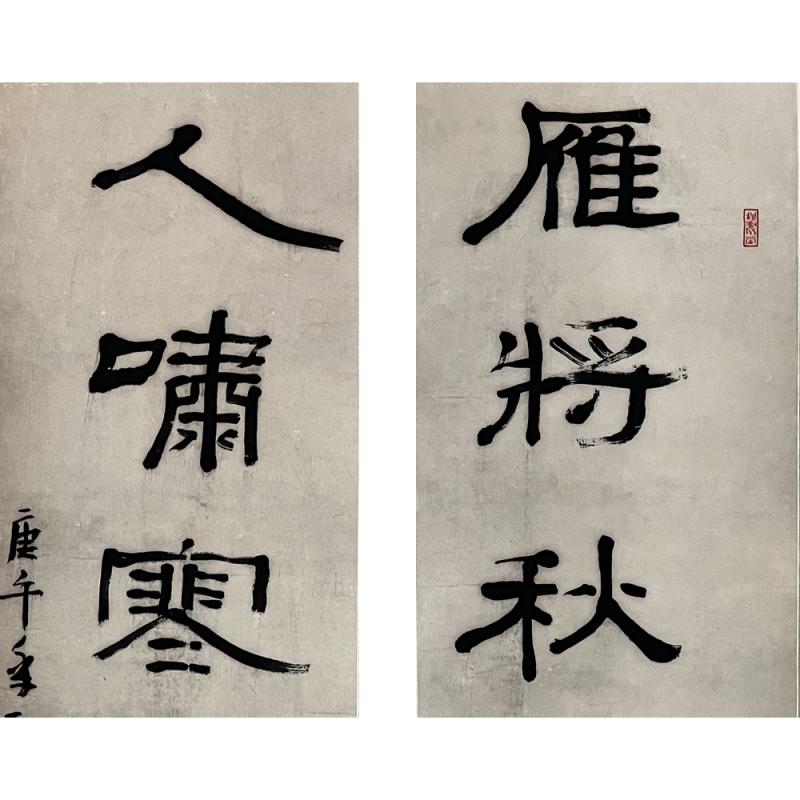 雁將秋
人嘯寒
庚午年